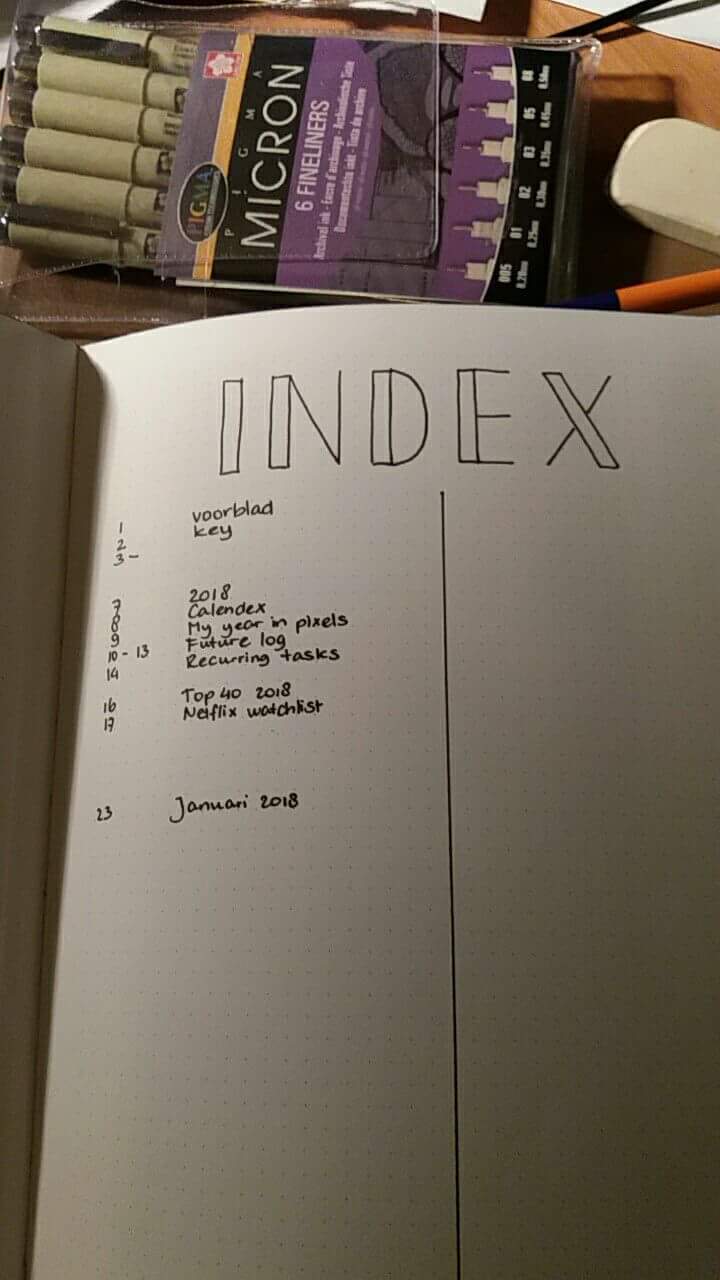 PIGMA
PIGMA
MICRON
6 FINELINERS
Archival ink - Encre d'archivage - Archivische Tinte
Documentechte inkt - Tinta de archivo
005 01 02 03 05 08
0.20mm 0.25mm 0.30mm 0.35mm 0.45mm 0.50mm
INDEX
1 voorblad
2 key
3 -
7 2018
8 Calendex
9 My year in pixels
10 - 13 Future log
14 Recurring tasks
16 Top 40 2018
17 Netflix watchlist
23 Januari 2018